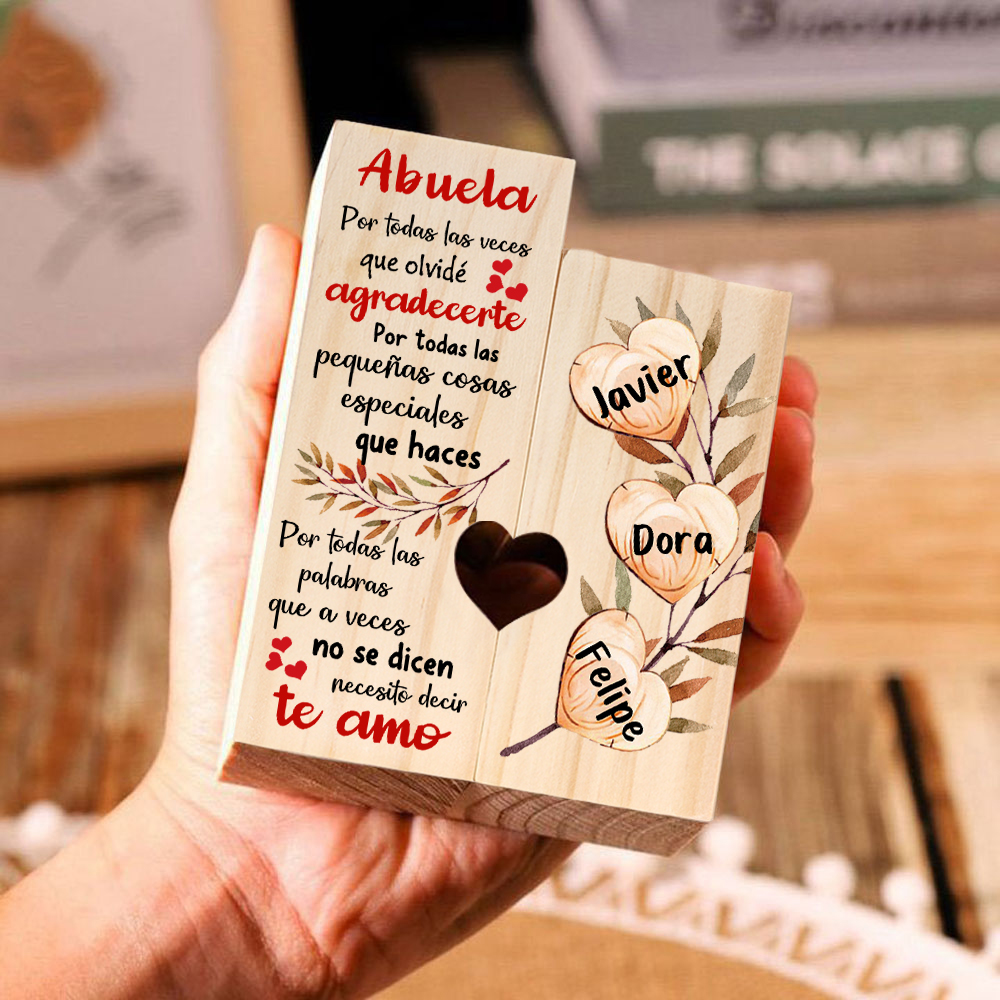 Abuela
Por todas las veces
que olvidé
agradecerte
Por todas las
pequeñas cosas
especiales
que haces
Por todas las
palabras
que a veces
no se dicen
necesito decir
te amo
Javier
Dora
Felipe
THE SOLACE